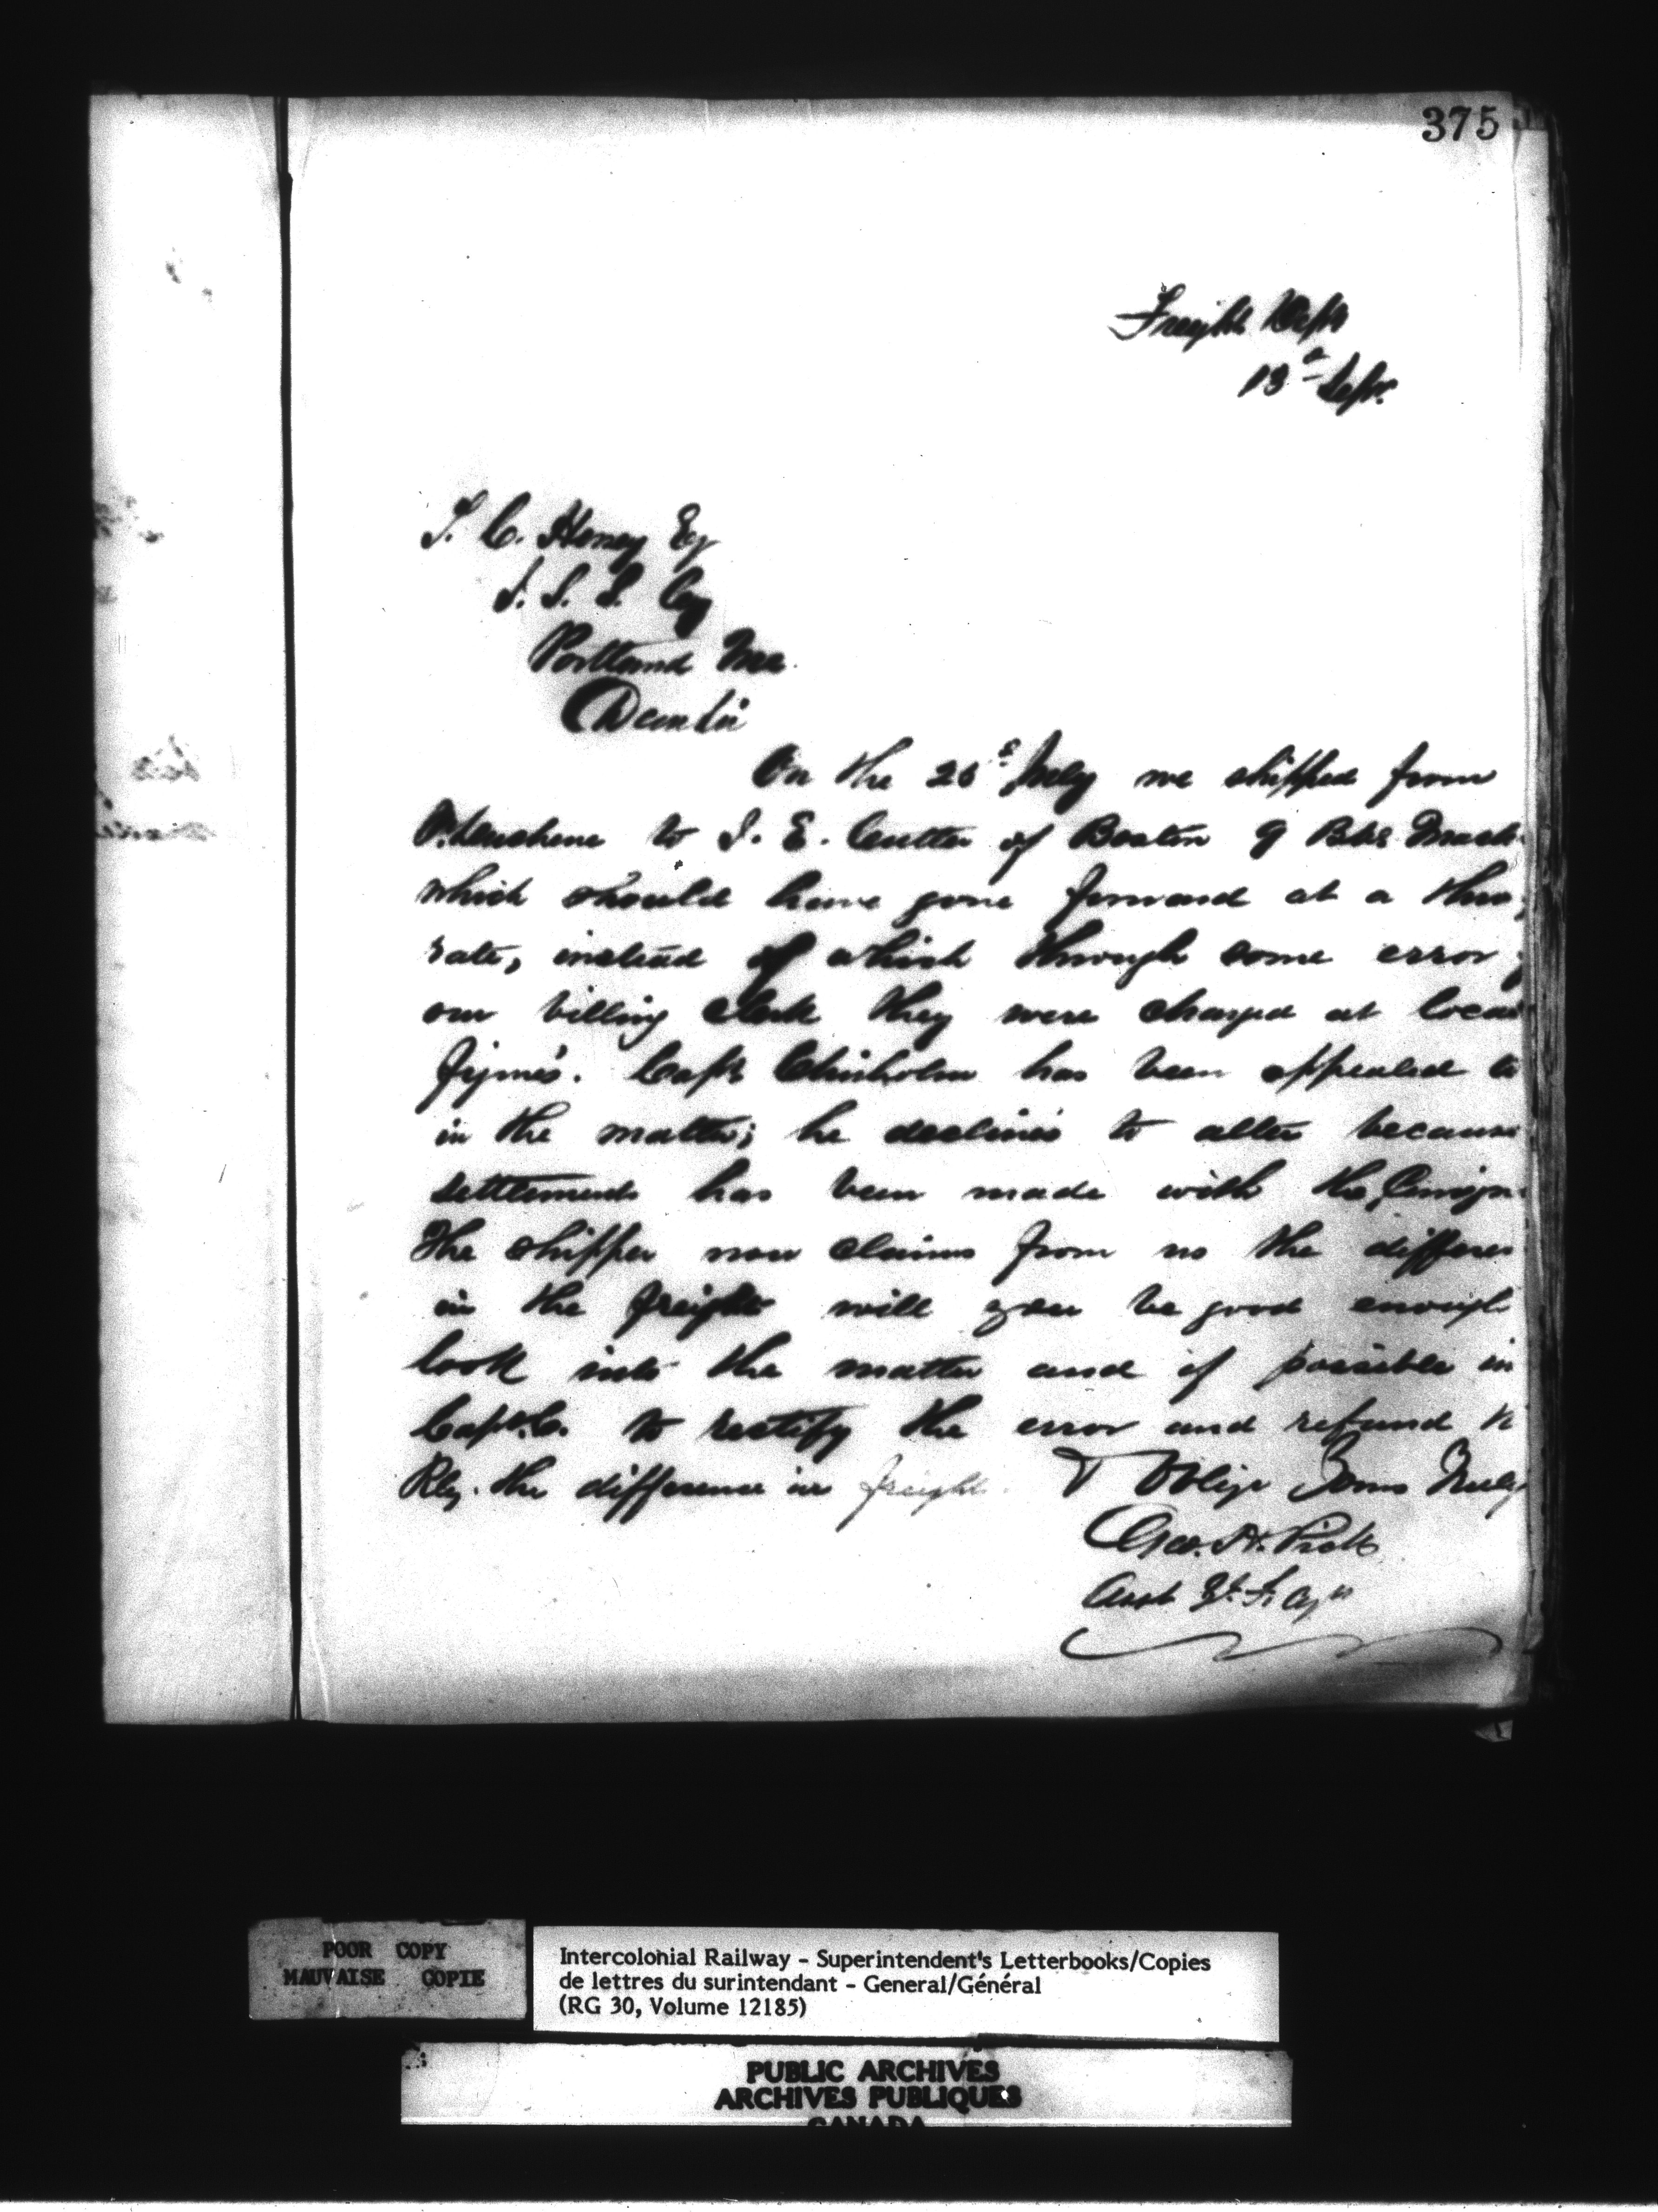 375
Freight Dept
13th Sept.
T. C. Hersey Esq
I. S. S. Coy
Portland Me.
Dear Sir
On the 26th July we shipped from
Pt. duchene to J. E. Cutter of Boston 9 Bbls Mack
which should have gone forward at a thro
rate, instead of which through some error
our billing clerk they were charged at local
figures. Capt Chisholm has been appealed to
in the matter; he declines to alter because
settlement has been made with the Consign
The shipper now claims from us the differen
in the freight will you be good enough
look into the matter and if possible in
Capt. C. to rectify the error and refund
Rly. the difference in freight. & Oblige Yours Truly
Geo. H. Pick
Asst G. F. Agt
POOR COPY
MAUVAISE COPIE
Intercolonial Railway - Superintendent's Letterbooks/Copies
de lettres du surintendant - General/Général
(RG 30, Volume 12185)
PUBLIC ARCHIVES
ARCHIVES PUBLIQUES
CANADA